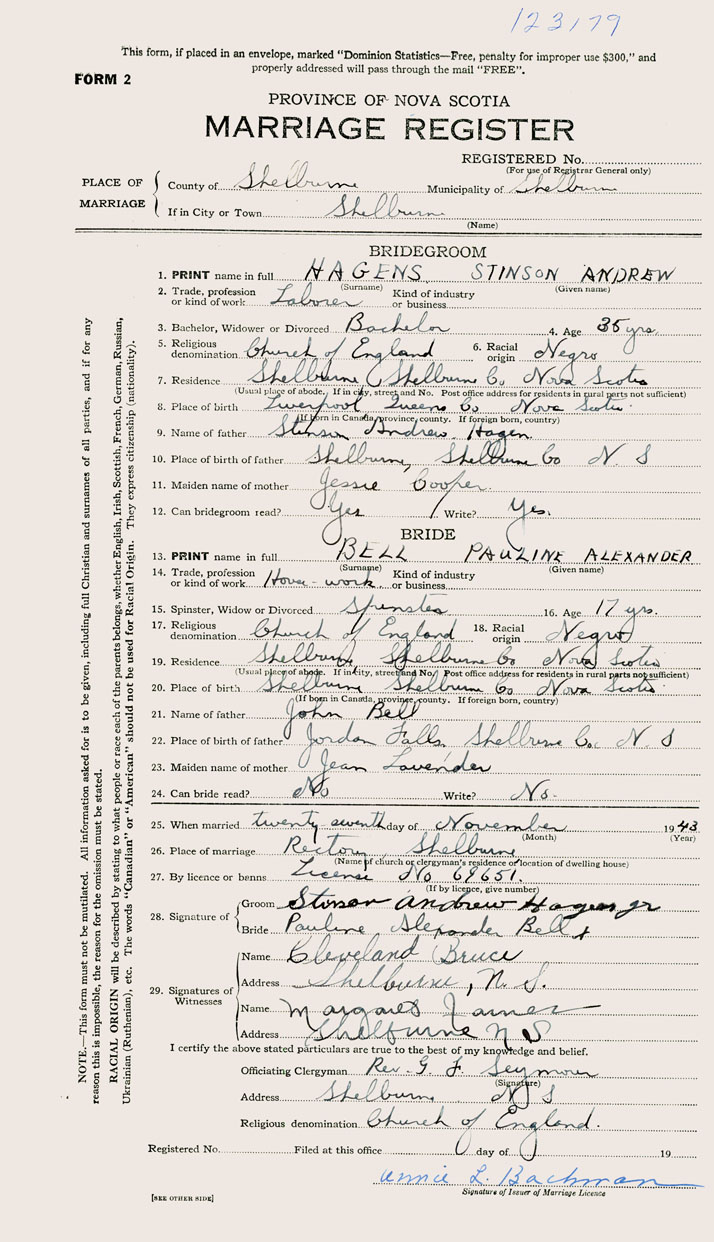 123179
This form, if placed in an envelope, marked "Dominion Statistics—Free, penalty for improper use $300," and
properly addressed will pass through the mail "FREE".
FORM 2
PROVINCE OF NOVA SCOTIA
MARRIAGE REGISTER
REGISTERED No.
(For use of Registrar General only)
PLACE OF MARRIAGE
County of Shelburne Municipality of Shelburne
If in City or Town Shelburne
(Name)
BRIDEGROOM
1. PRINT name in full HAGENS, STINSON ANDREW
(Surname) (Given name)
2. Trade, profession or kind of work Laborer Kind of industry or business
3. Bachelor, Widower or Divorced Bachelor 4. Age 35 yrs.
5. Religious denomination Church of England 6. Racial origin Negro
7. Residence Shelburne Shelburne Co Nova Scotia
(Usual place of abode. If in city, street and No. Post office address for residents in rural parts not sufficient)
8. Place of birth Liverpool Queens Co Nova Scotia
(If born in Canada, province, county. If foreign born, country)
9. Name of father Stinson Andrew Hagen
10. Place of birth of father Shelburne, Shelburne Co N. S
11. Maiden name of mother Jessie Cooper.
12. Can bridegroom read? Yes Write? Yes.
BRIDE
13. PRINT name in full BELL PAULINE ALEXANDER
(Surname) (Given name)
14. Trade, profession or kind of work House-work Kind of industry or business
15. Spinster, Widow or Divorced Spinster 16. Age 17 yrs.
17. Religious denomination Church of England 18. Racial origin Negro
19. Residence Shelburne Shelburne Co Nova Scotia
(Usual place of abode. If in city, street and No. Post office address for residents in rural parts not sufficient)
20. Place of birth Shelburne Shelburne Co Nova Scotia
(If born in Canada, province, county. If foreign born, country)
21. Name of father John Bell
22. Place of birth of father Jordan Falls, Shelburne Co. N. S
23. Maiden name of mother Jean Lavender
24. Can bride read? No Write? No.
25. When married twenty seventh day of November 1943
(Month) (Year)
26. Place of marriage Rectory, Shelburne
(Name of church or clergyman's residence or location of dwelling house)
27. By licence or banns License No 69651.
(If by licence, give number)
28. Signature of
Groom Stinson Andrew Hagens jr
Bride Pauline Alexander Bell x
29. Signatures of Witnesses
Name Cleveland Bruce
Address Shelburne, N. S.
Name Margaret
Address Shelburne N S
I certify the above stated particulars are true to the best of my knowledge and belief.
Officiating Clergyman Rev. G. F. Seymour
(Signature)
Address Shelburne N S
Religious denomination Church of England.
Registered No. Filed at this office day of 19
Annie L. Bachman
Signature of Issuer of Marriage Licence
[SEE OTHER SIDE]
NOTE.—This form must not be mutilated. All information asked for is to be given, including full Christian and surnames of all parties, and if for any
reason this is impossible, the reason for the omission must be stated.
RACIAL ORIGIN will be described by stating to what people or race each of the parents belongs, whether English, Irish, Scottish, French, German, Russian,
Ukrainian (Ruthenian), etc. The words "Canadian" or "American" should not be used for Racial Origin. They express citizenship (nationality).